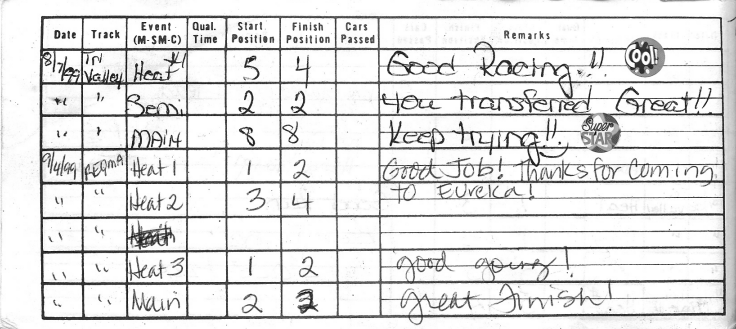 Date Track Event (M-SM-C) Qual. Time Start Position Finish Position Cars Passed Remarks
8/7/99 Tri Valley Heat #1 5 4 Good Racing!! Cool!
" " Semi 2 2 You transferred Great!!
" " MAIN 8 8 Keep trying!! Super STAR
9/4/99 Heat 1 1 2 Good Job! Thanks for Coming
" " Heat 2 3 4 To Eureka!
" "
" " Heat 3 1 2 good going!
" " Main 2 great finish!